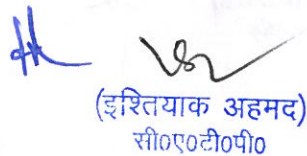 (इश्तियाक अहमद)
सी०ए०टी०पी०